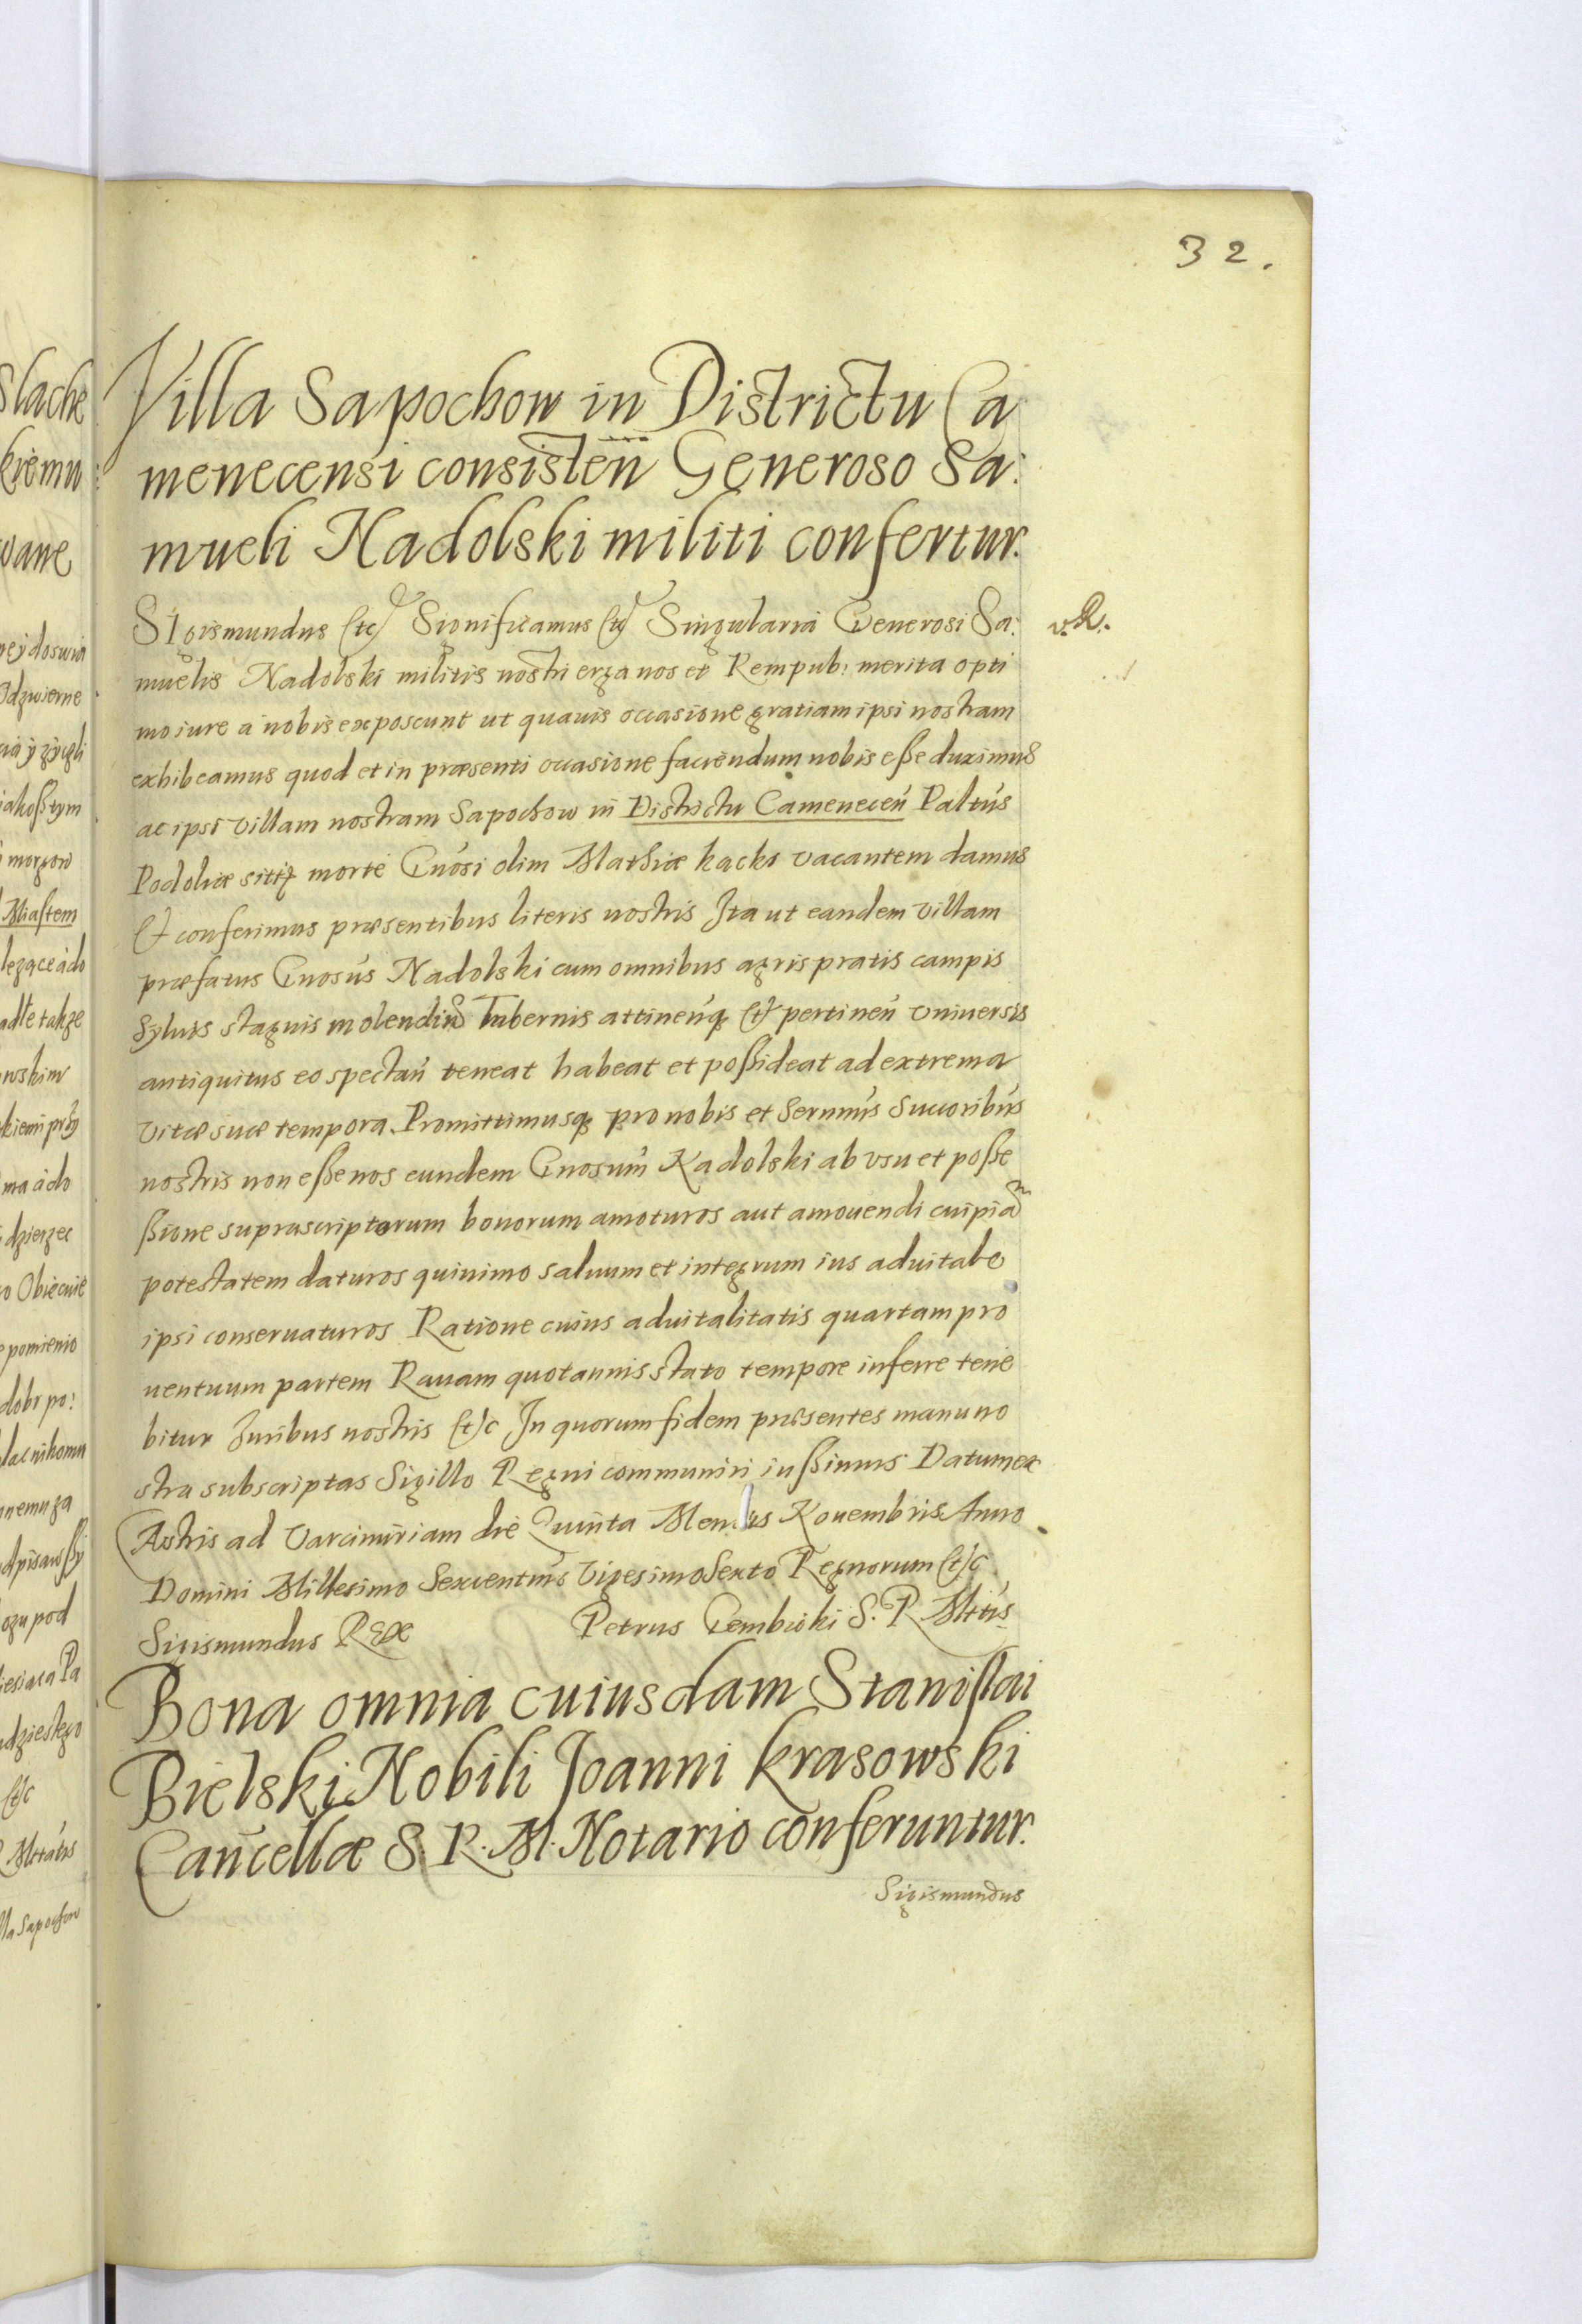 32.
Villa Sapochow in Districtu Ca
menecensi consisteñ Generoso Sa:
mueli Nadolski militi confertur.
SIgismundus etc Significamus etc Singularia Generosi Sa:
v. R.
muelis Nadolski militis nostri erga nos et Rempub: merita opti
mo iure a nobis exposcunt ut quauis occasione gratiam ipsi nostram
exhibeamus quod et in præsenti occasione faciendum nobis eße duximus
ac ipsi villam nostram Sapochow in Districtu Cameneceñ Paltũs
Podoliæ sitã morte Gñosi olim Mathiæ kacki vacantem damus
et conferimus præsentibus literis nostris Ita ut eandem villam
præfatus Gnosũs Nadolski cum omnibus agris pratis campis
syluis stagnis molendiñ Tabernis attineñq et pertineñ vniversis
antiquitus eo spectañ teneat habeat et poßideat ad extrema
vitæ suæ tempora. Promittimusq pro nobis et Sernmĩs Succoribũs
nostris non eße nos eundem Gnosũm Nadolski ab vsu et poße
ßione suprascriptorum bonorum amoturos aut amouendi cuipiã
potestatem daturos quinimo saluum et integrum ius aduitale
ipsi conseruaturos Ratione cuius aduitalitatis quartam pro
uentuum partem Rauam quotannis stato tempore inferre tene
bitur Iuribus nostris etc In quorum fidem præsentes manu no
stra subscriptas Sigillo Regni communiri iußimus Datum ex
Castris ad Varcimiriam die Quinta Mensis Nouembris Anno
Domini Millesimo Sexcentmõ Vigesimo Sexto Regnorum etc
Sigismundus Rex Petrus Gembicki S. R. Mttis
Bona omnia cuiusdam Stanislai
Bielski Nobili Joanni krasowski
Cañcellæ S. R. M. Notario conferuntur.
Sigismundus